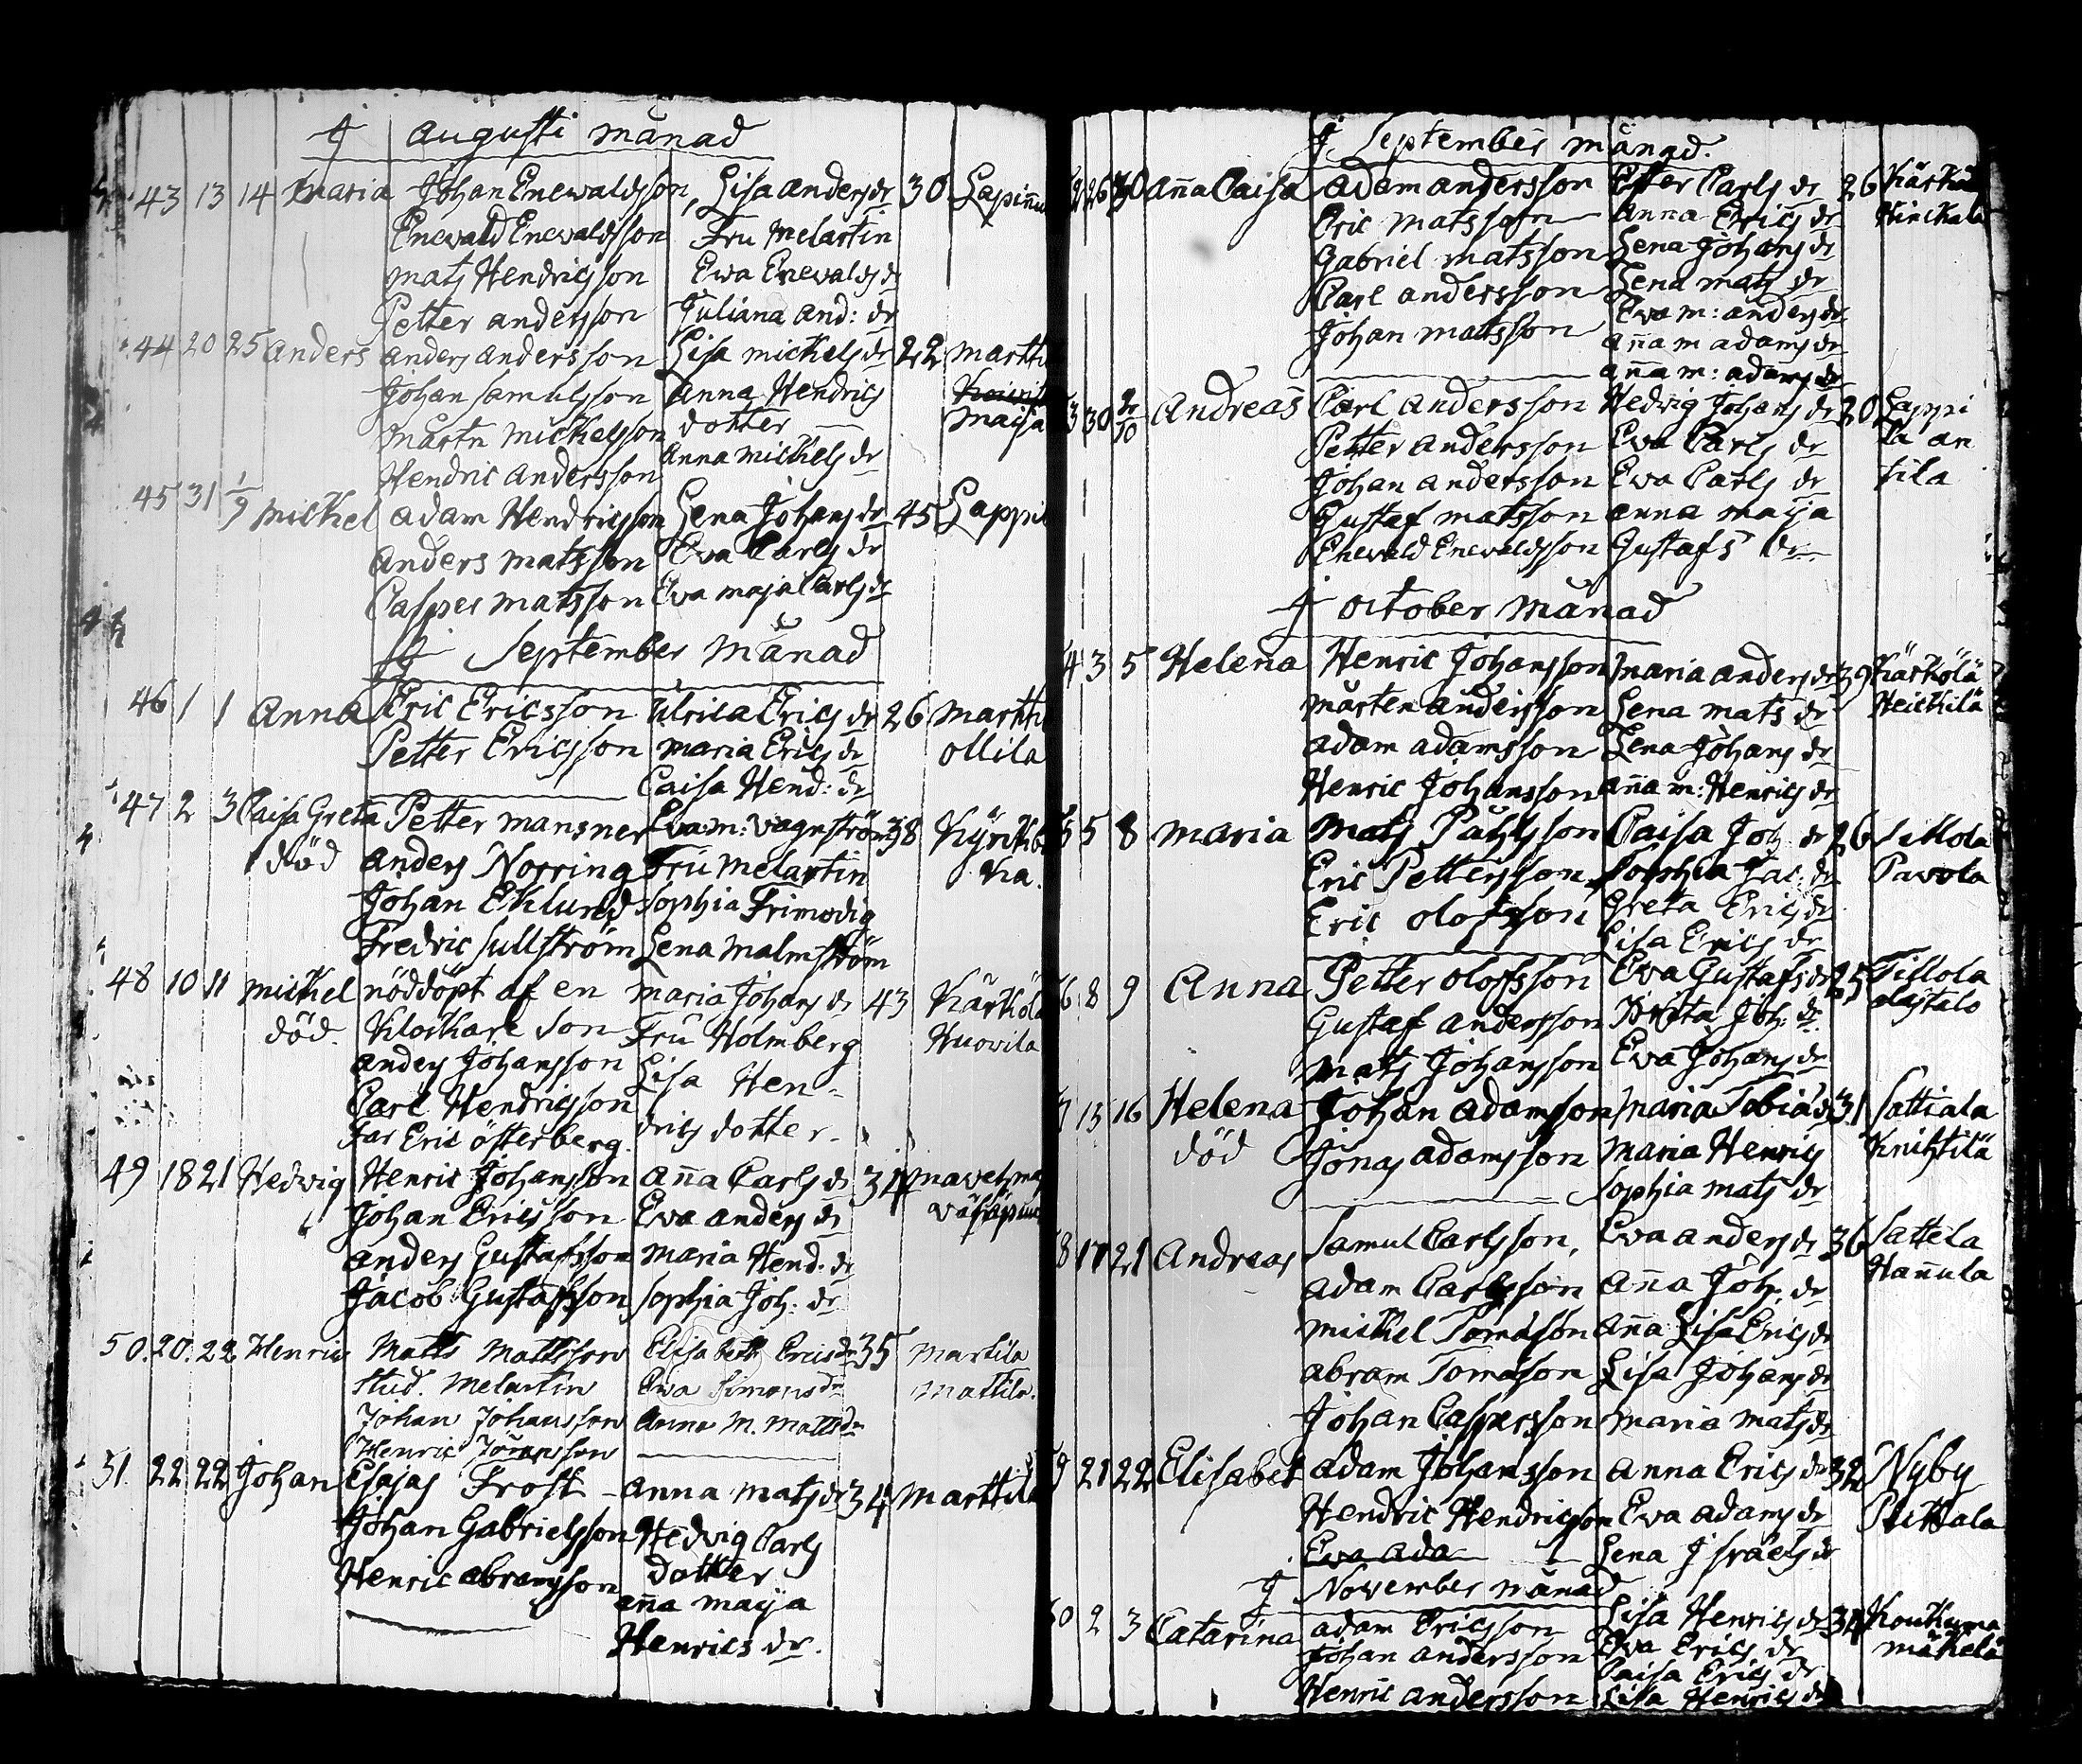 J Augusti månad
43 13 14 Maria Johan Enewaldsson, Lisa Anders dr 30 Lapinnu
Enewald Enewaldsson Fru Melartin
Mats Hendricsson Ewa Enewalds dr
Petter Andersson Juliana And: dr
44 20 25 Anders Anders Andersson Lisa Michels dr 22 Martti
Johan Samulsson Anna Hendrics
Mårtn Michelsson dotter Maija
Hendric Andersson Anna Michels dr
45 31 1/9 Michel Adam Hendricsson Lena Johans dr 45 Lappi
Anders Matsson Eva Carls dr
Casper Matsson Eva Maja Carls dr
J September Månad
46 1 1 Anna Eric Ericsson Ulrica Erics dr 26 Martti
Petter Ericsson Maria Erics dr Ollila
Caisa Hend: dr
47 2 3 Caisa Greta Petter Mansner Eva m: Vagnström 38 Kyrckba
död Anders Norring Fru Melartin Ka.
Johan Eklund Sophia Frimodig
Fredric Sullström Lena Malmström
48 10 11 Michel nöddöpt af en Maria Johans dr 43 Kärköla
död. Klockare Son Fru Holmberg Huovila
Anders Johansson Lisa Hen-
Carl Hendricsson drics dotter.
Far Eric Österberg.
49 18 21 Hedvig Henric Johansson Aña Carls dr 34
Johan Ericsson Eva Anders dr
Anders Gustafsson Maria Hend. dr
Jacob Gustafsson Sophia Joh: dr
50. 20. 22 Henric Matts Mattsson Elisabeth Ericsdr 35 Martila
Stud. Melartin Eva Simonsdr Mattila.
Johan Johansson Anna M. Mattsdr
Henric Göransson
51. 22 22 Johan Esajas Frost - Anna Mats dr 34 Marttila
Johan Gabrielsson Hedvig Carls
Henric Abramsson dotter
Aña Maija
Henrics dr.
J September månad.
2 26 30 Aña Caisa Adam Andersson Ester Carls dr 26
Eric Matsson Anna Erics dr
Gabriel Matsson Lena Johans dr
Carl Andersson Lena Mats dr
Johan Matsson Eva m: Anders dr
Aña m Adams dr
Aña m: Adams dr
3 30 2/10 Andreas Carl Andersson Hedvig Johans dr 20 Lappi
Petter Andersson Eva Carls dr la an
Johan Andersson Eva Carls dr tila
Gustaf Matsson Anna Maija
Enevald Enevaldsson Gustafs dr
J October Månad
4 3 5 Helena Henric Johansson Maria Anders dr 39 Kärkölä
Mårten Andersson Lena Mats dr Heickilä
Adam Adamsson Lena Johans dr
Henric Johansson Aña m: Henrics dr
5 5 8 Maria Mats Påhlsson Caisa Joh dr 26
Eric Pettersson Sophia Jac: dr Pavola
Eric Olofsson Greta Erics dr
Lisa Erics dr
6 8 9 Anna Petter Olofsson Eva Gustafs dr 25
Gustaf Andersson Joh: dr.
Mats Johansson Eva Johans dr
7 15 16 Helena Johan Adamsson Maria Tobias dr 31 Sattiala
död Jonas Adamsson Maria Henrics Knihtilä
Sophia Mats dr
8 17 21 Andreas Samul Carlsson, Eva Anders dr 36 Sattela
Adam Carlsson Aña Joh. dr Hañula
Michel Tomasson Aña Lisa Erics dr
Abram Tomasson Lisa Johans dr
Johan Caspersson Maria Mats dr
9 21 22 Elisabet Adam Johansson Anna Erics dr 32 Nyby
Hendric Hendricsson Eva Adams dr
Eva Ada Lena Jsraels dr
J November månad
0 2 3 Catarina Adam Ericsson Lisa Henrics dr 34
Johan Andersson Eva Erics dr Mäkelä
Caisa Erics dr
Henric Andersson Lisa Henrics dr